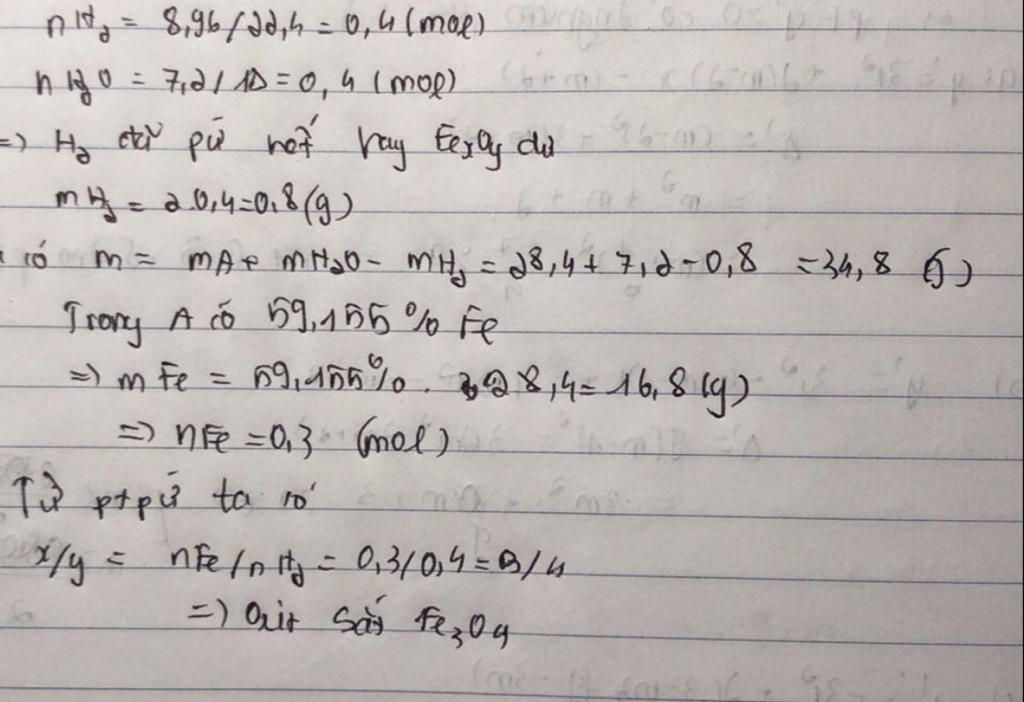 nH₂ = 8,96/22,4 = 0,4 (mol)
nH₂O = 7,2/18 = 0,4 (mol)
=> H₂ đã pứ hết hay FexOy dư
mH₂ = 2.0,4=0,8(g)
có m = mA + mH₂O - mH₂ = 28,4 + 7,2 - 0,8 = 34,8 (g)
Trong A có 59,155% Fe
=> mFe = 59,155% . 28,4 = 16,8 (g)
=> nFe = 0,3 (mol)
Từ ptpứ ta có
x/y = nFe/nH₂ = 0,3/0,4 = 3/4
=> Oxit sắt Fe₃O₄